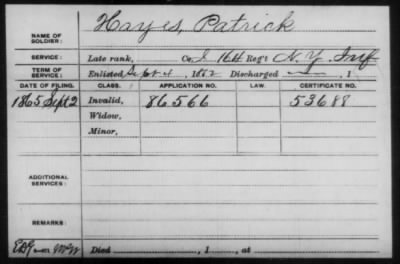 NAME OF SOLDIER: Hayes, Patrick
SERVICE: Late rank, Co. I 164 Reg't N.Y. Inf
TERM OF SERVICE: Enlisted Sept 4, 1862 Discharged —, 1
DATE OF FILING. CLASS. APPLICATION NO. LAW. CERTIFICATE NO.
1865 Sept 2 Invalid, 86566 53688
Widow,
Minor,
ADDITIONAL SERVICES:
REMARKS:
Died , 1 , at